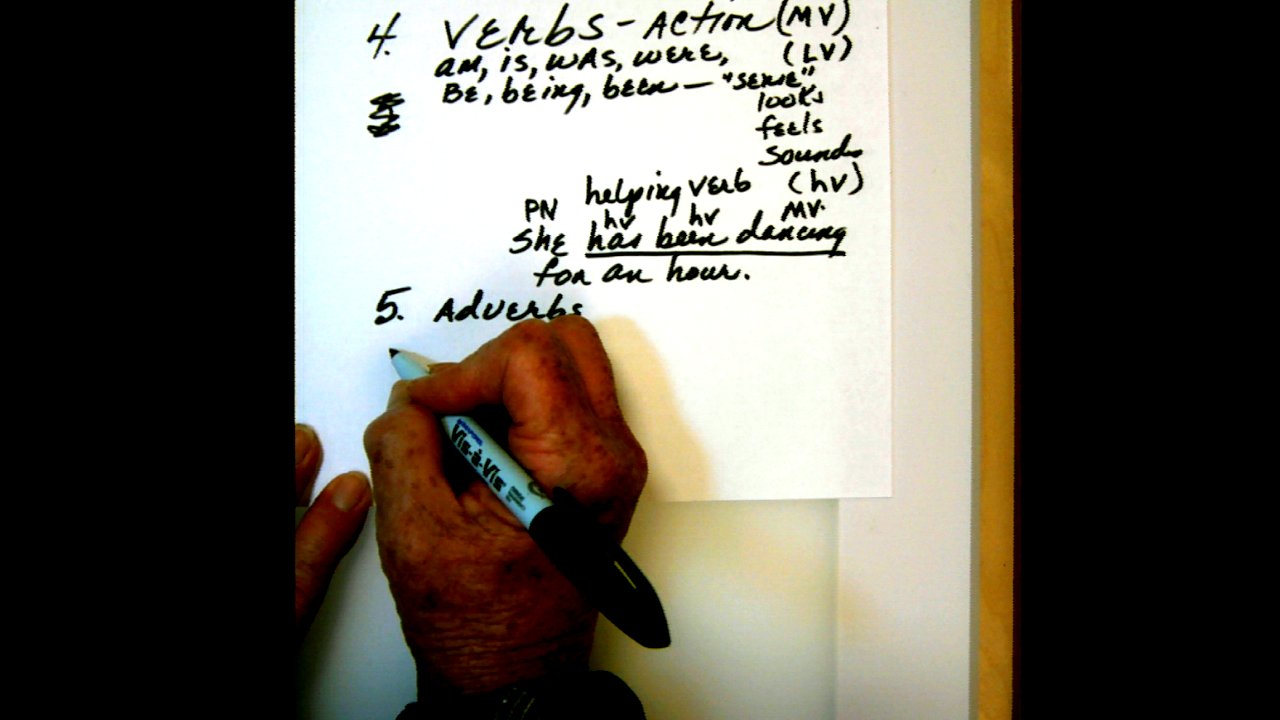 4. VERbS - ACTION (MV)
AM, is, WAS, WERE, (LV)
BE, bEing, bEEn - "SENSE"
looks
fEEls
Sounds
helping VERb (hv)
PN hv hv MV.
ShE has been dancing
for an hour.
5. AdVERbs
Vis-à-Vis